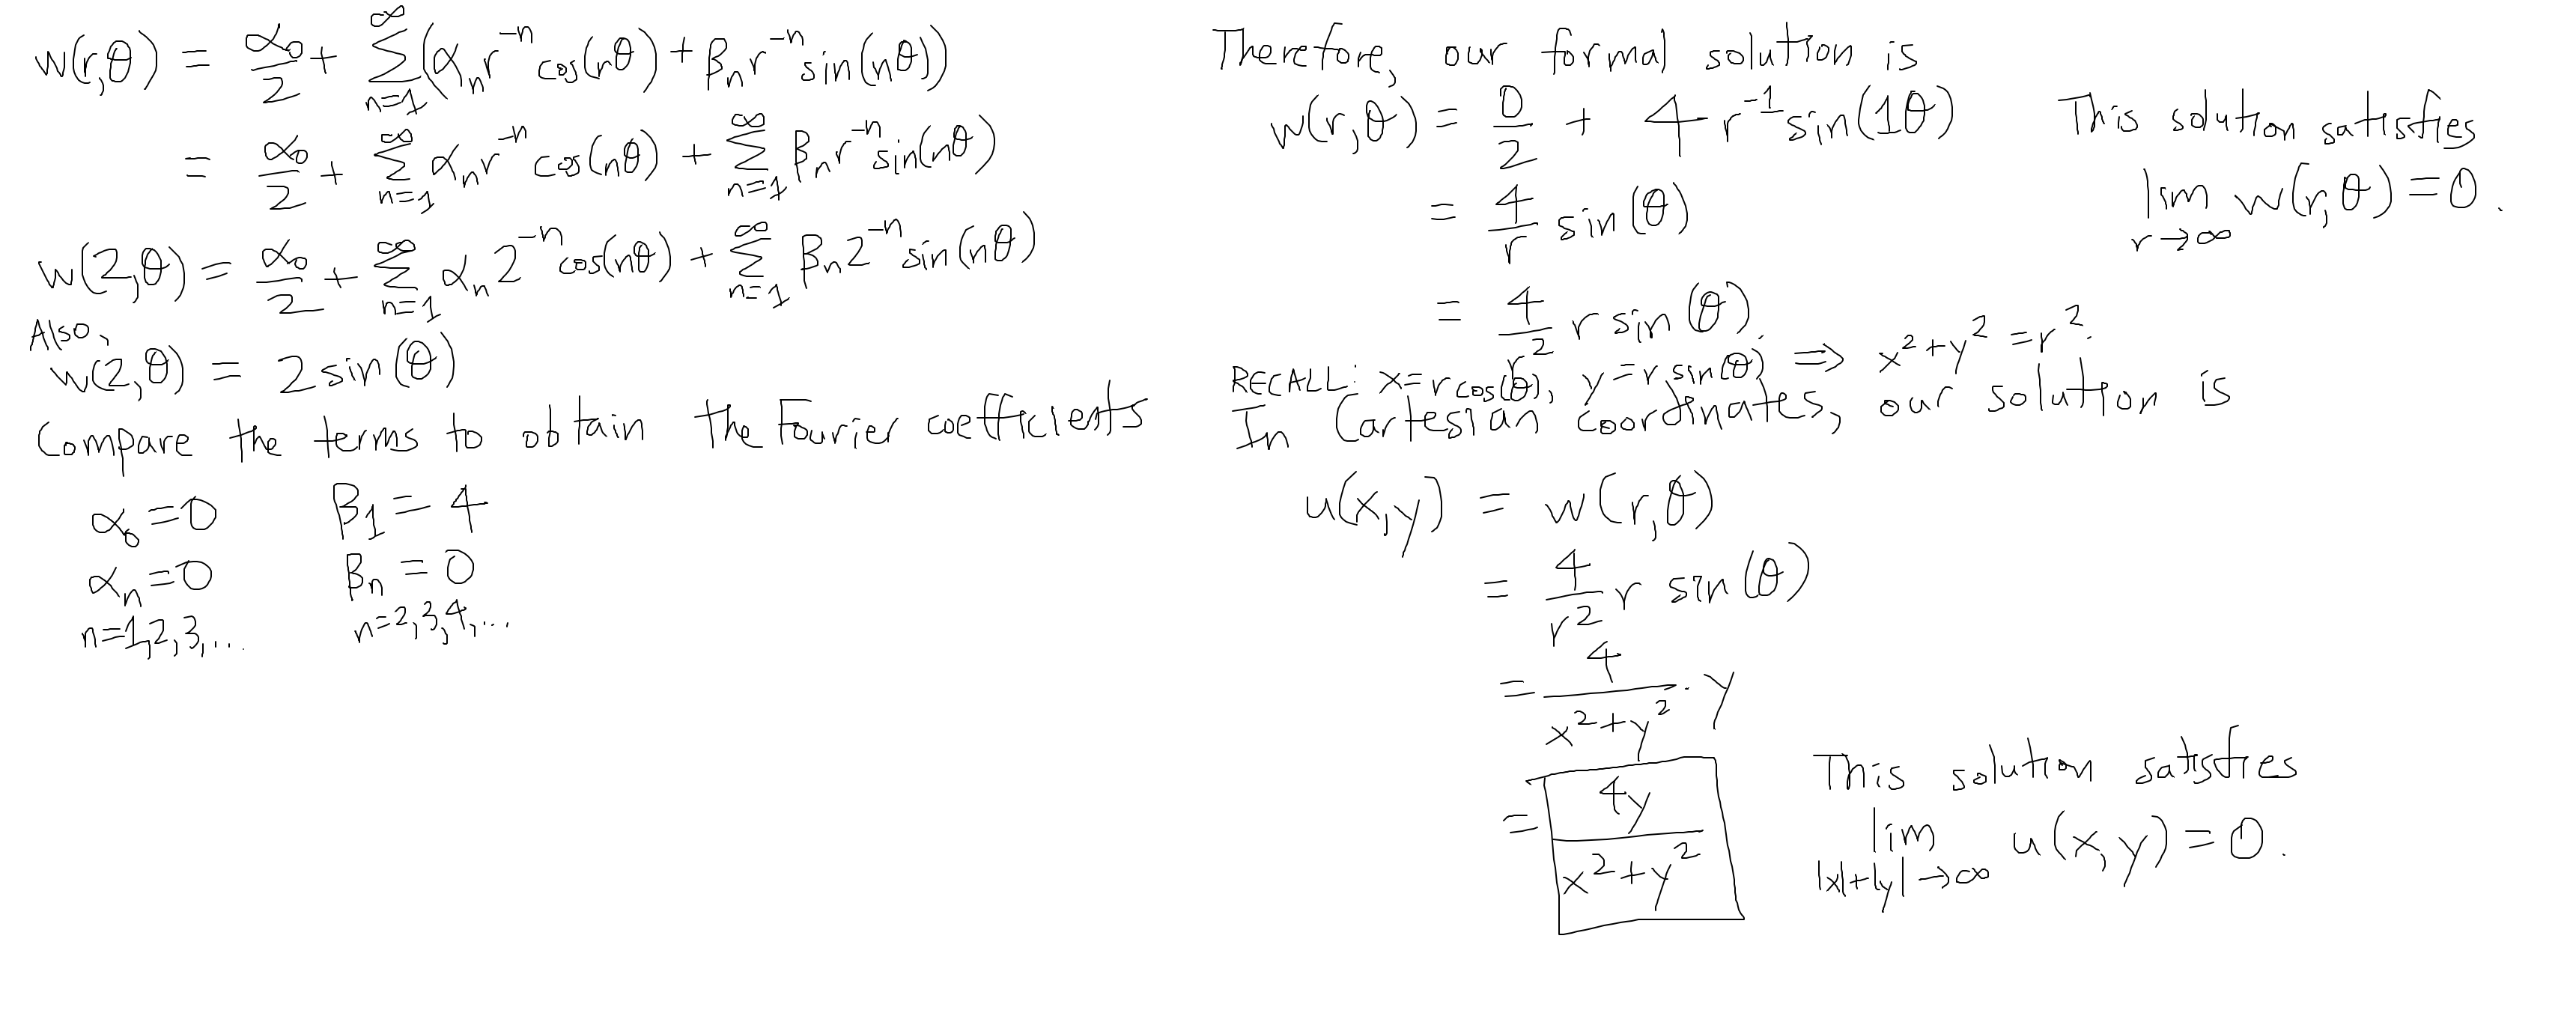 w(r,θ) = α₀/2 + Σ_{n=1}^{∞} (αₙ r⁻ⁿ cos(nθ) + βₙ r⁻ⁿ sin(nθ))
= α₀/2 + Σ_{n=1}^{∞} αₙ r⁻ⁿ cos(nθ) + Σ_{n=1}^{∞} βₙ r⁻ⁿ sin(nθ)
w(2,θ) = α₀/2 + Σ_{n=1}^{∞} αₙ 2⁻ⁿ cos(nθ) + Σ_{n=1}^{∞} βₙ 2⁻ⁿ sin(nθ)
Also,
w(2,θ) = 2 sin(θ)
Compare the terms to obtain the Fourier coefficients
α₀ = 0 β₁ = 4
αₙ = 0 βₙ = 0
n=1,2,3,... n=2,3,4,...
Therefore, our formal solution is
w(r,θ) = 0/2 + 4 r⁻¹ sin(1θ)
= 4/r sin(θ)
= 4/r² r sin(θ).
This solution satisfies
lim_{r→∞} w(r,θ) = 0.
RECALL: x = r cos(θ), y = r sin(θ) ⇒ x² + y² = r².
In Cartesian coordinates, our solution is
u(x,y) = w(r,θ)
= 4/r² r sin(θ)
= 4/(x²+y²) · y
= 4y/(x²+y²)
This solution satisfies
lim_{|x|+|y|→∞} u(x,y) = 0.